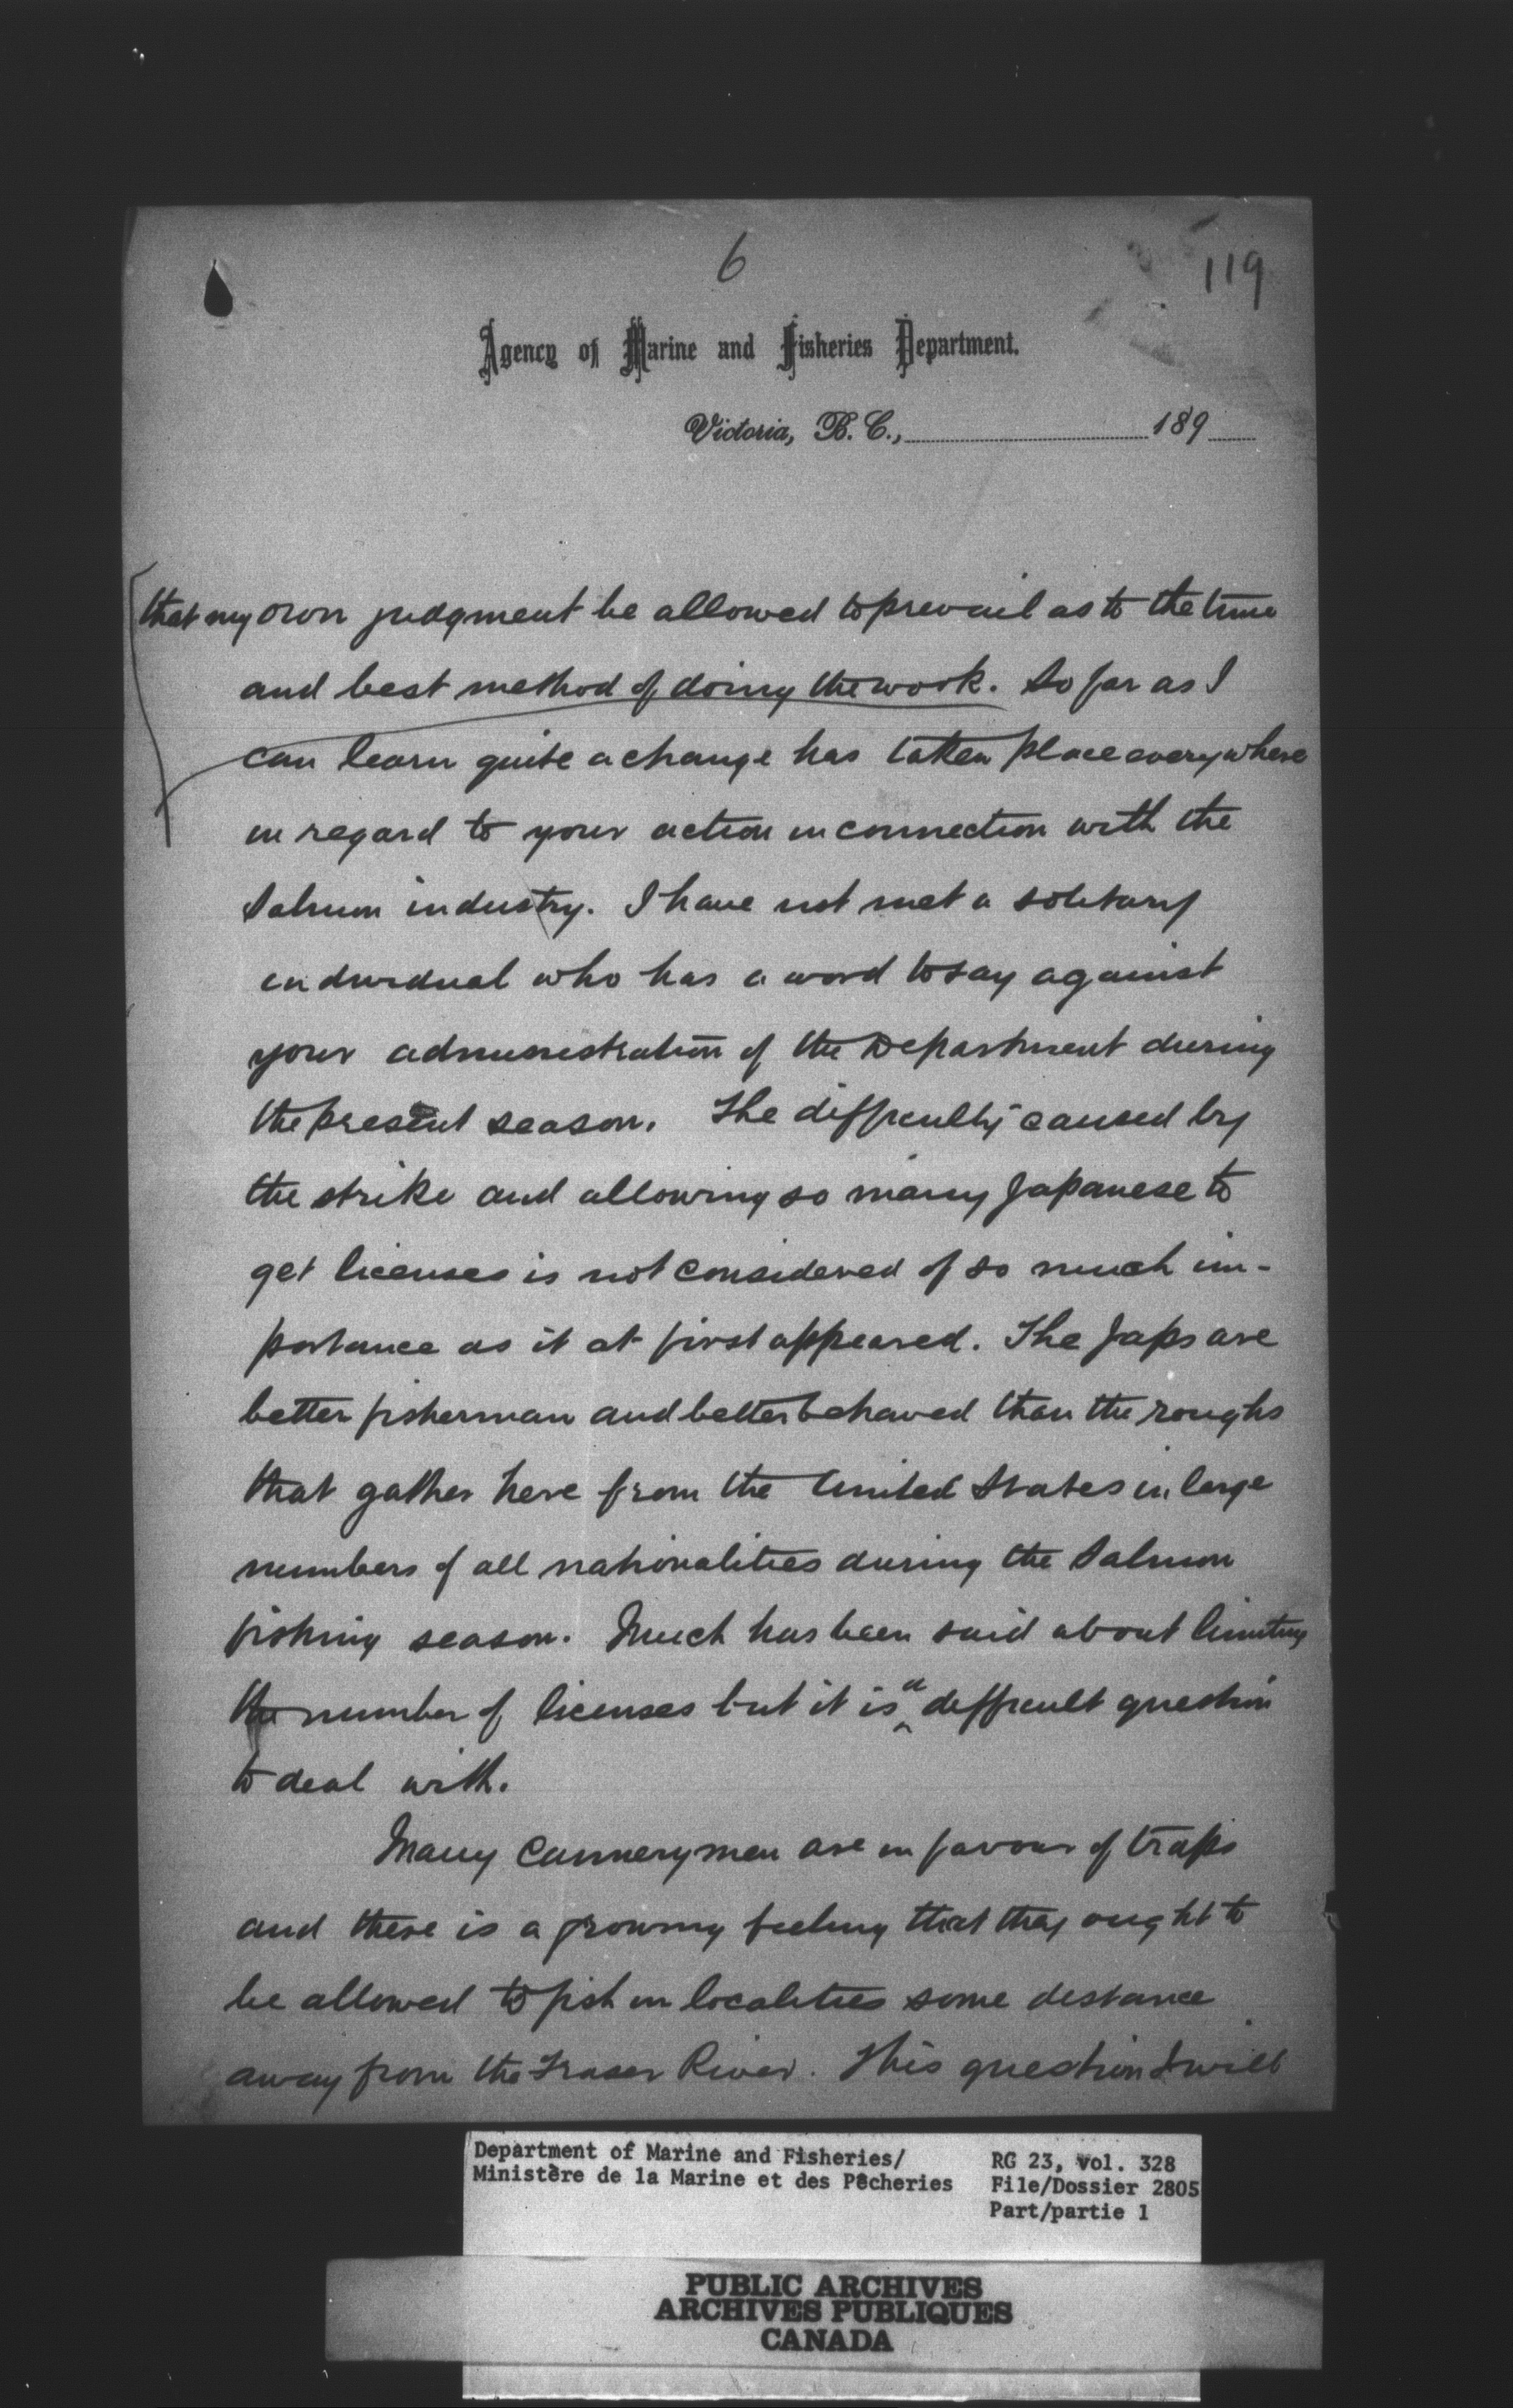 6
119
Agency of Marine and Fisheries Department.
Victoria, B. C., 189
that my own judgment be allowed to prevail as to the time
and best method of doing the work. So far as I
can learn quite a change has taken place everywhere
in regard to your action in connection with the
Salmon industry. I have not met a solitary
individual who has a word to say against
your administration of the Department during
the present season. The difficulty caused by
the strike and allowing so many Japanese to
get licenses is not considered of so much im-
portance as it at first appeared. The Japs are
better fisherman and better behaved than the roughs
that gather here from the United States in large
numbers of all nationalities during the Salmon
fishing season. Much has been said about limiting
the number of licenses but it is a difficult question
to deal with.
Many Cannerymen are in favour of traps
and there is a growing feeling that they ought to
be allowed to fish in localities some distance
away from the Fraser River. This question I will
Department of Marine and Fisheries/ RG 23, Vol. 328
Ministère de la Marine et des Pêcheries File/Dossier 2805
Part/partie 1
PUBLIC ARCHIVES
ARCHIVES PUBLIQUES
CANADA